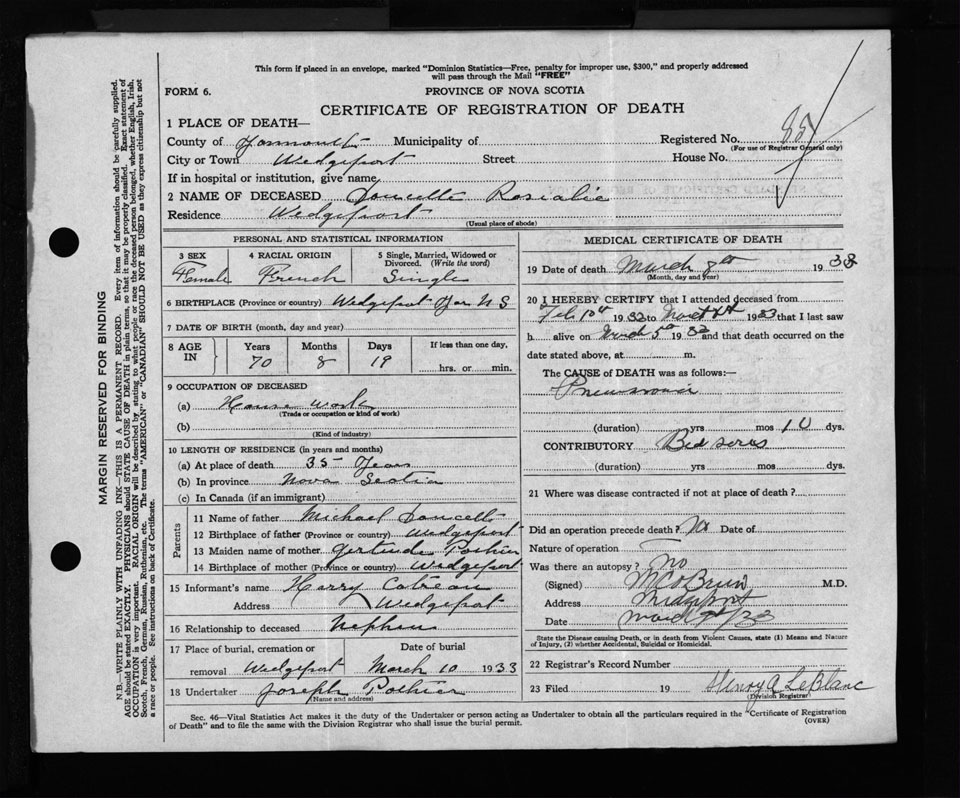 This form if placed in an envelope, marked "Dominion Statistics—Free, penalty for improper use, $300," and properly addressed
will pass through the Mail "FREE"
FORM 6. PROVINCE OF NOVA SCOTIA
CERTIFICATE OF REGISTRATION OF DEATH
1 PLACE OF DEATH—
County of Yarmouth Municipality of Registered No.
(For use of Registrar General only)
City or Town Wedgeport Street House No.
If in hospital or institution, give name
2 NAME OF DECEASED Doucette Rosalie
Residence Wedgeport
(Usual place of abode)
PERSONAL AND STATISTICAL INFORMATION
3 SEX 4 RACIAL ORIGIN 5 Single, Married, Widowed or
Divorced. (Write the word)
Female French Single
6 BIRTHPLACE (Province or country) Wedgeport Yar N S
7 DATE OF BIRTH (month, day and year)
8 AGE IN Years Months Days If less than one day,
70 8 19 hrs. or min.
9 OCCUPATION OF DECEASED
(a) House work
(Trade or occupation or kind of work)
(b)
(Kind of industry)
10 LENGTH OF RESIDENCE (in years and months)
(a) At place of death 35 Years
(b) In province Nova Scotia
(c) In Canada (if an immigrant)
Parents
11 Name of father Michael Doucette
12 Birthplace of father (Province or country) Wedgeport
13 Maiden name of mother Gertrude Pothier
14 Birthplace of mother (Province or country) Wedgeport
15 Informant's name Harry Cotreau
Address Wedgeport
16 Relationship to deceased Nephew
17 Place of burial, cremation or Date of burial
removal Wedgeport March 10 1933
18 Undertaker Joseph Pothier
(Name and address)
MEDICAL CERTIFICATE OF DEATH
19 Date of death March 8th 193
(Month, day and year)
20 I HEREBY CERTIFY that I attended deceased from
Feb 10th 1933 to 1933 that I last saw
h alive on March 5th 1933 and that death occurred on the
date stated above, at m.
The CAUSE of DEATH was as follows:—
Pneumonia
(duration) yrs mos 10 dys.
CONTRIBUTORY Bed sores
(duration) yrs mos dys.
21 Where was disease contracted if not at place of death?
Did an operation precede death? No Date of
Nature of operation
Was there an autopsy? No
(Signed) M.D.
Address Wedgeport
Date March
State the Disease causing Death, or in death from Violent Causes, state (1) Means and Nature
of Injury, (2) whether Accidental, Suicidal or Homicidal.
22 Registrar's Record Number
23 Filed 19 Henry A LeBlanc
(Division Registrar)
Sec. 46—Vital Statistics Act makes it the duty of the Undertaker or person acting as Undertaker to obtain all the particulars required in the "Certificate of Registration
of Death" and to file the same with the Division Registrar who shall issue the burial permit. (OVER)
MARGIN RESERVED FOR BINDING
N.B.—WRITE PLAINLY WITH UNFADING INK—THIS IS A PERMANENT RECORD. Every item of information should be carefully supplied.
AGE should be stated EXACTLY. PHYSICIANS should STATE CAUSE OF DEATH in plain terms, so that it may be properly classified. Exact statement of
OCCUPATION is very important. RACIAL ORIGIN will be described by stating to what people or race the deceased person belonged, whether English, Irish,
Scotch, French, German, Russian, Ruthenian, etc. The terms "AMERICAN" or "CANADIAN" SHOULD NOT BE USED as they express citizenship but not
a race or people. See instructions on back of Certificate.